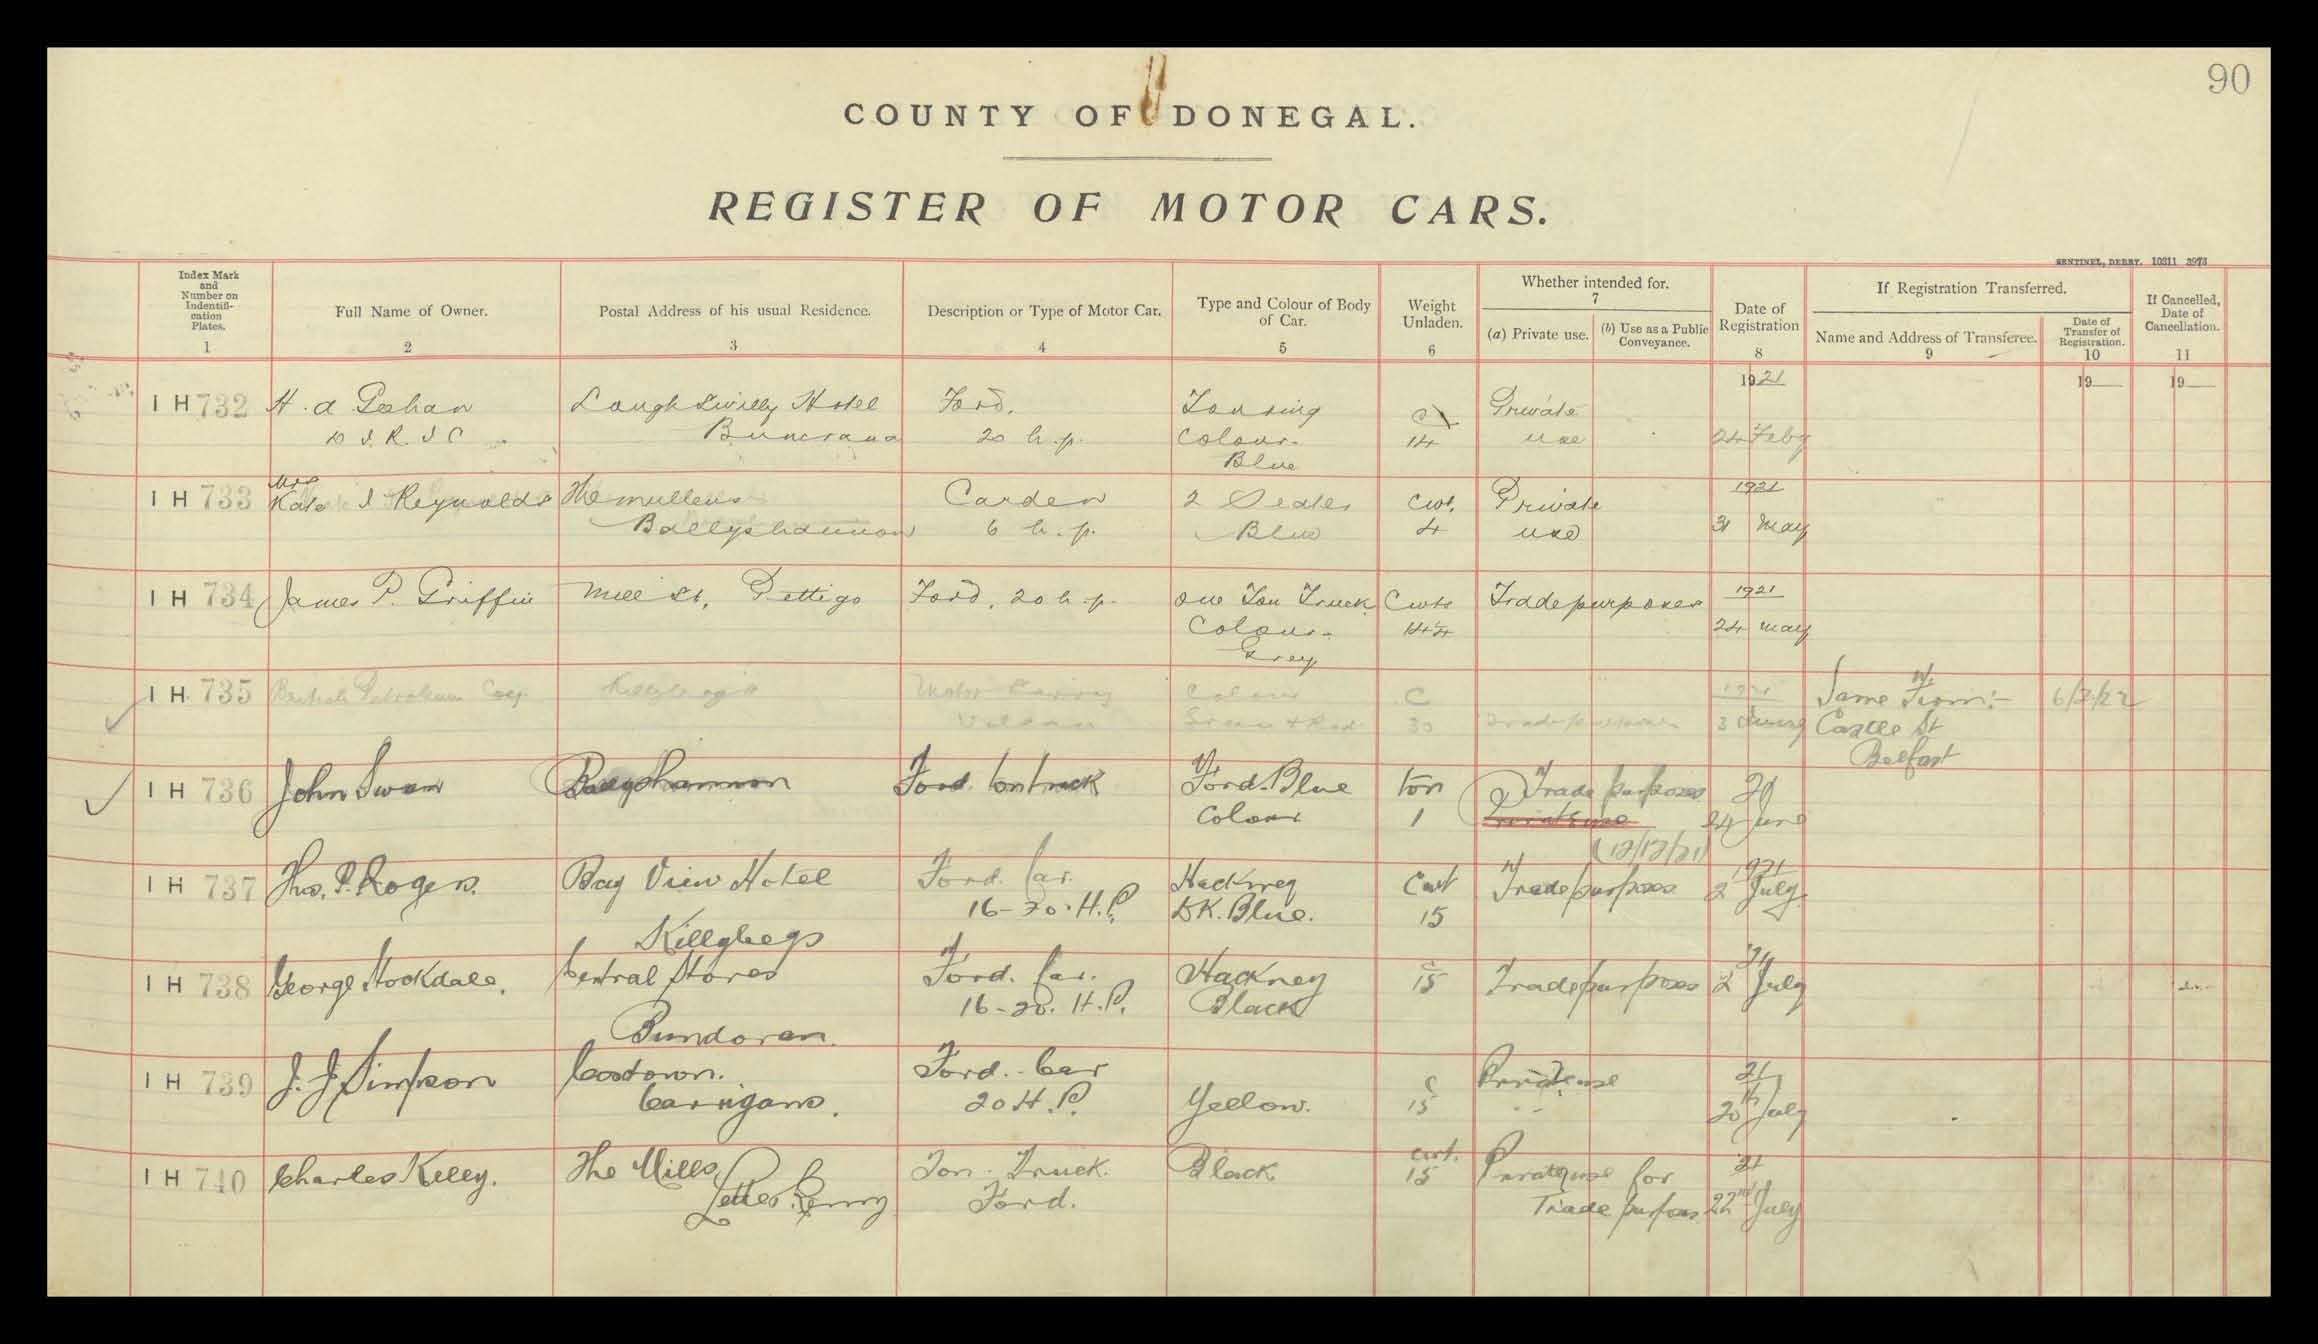 90
COUNTY OF DONEGAL.
REGISTER OF MOTOR CARS.
SENTINEL, DERRY. 10311 3973
Index Mark and Number on Indentifi-cation Plates. 1
Full Name of Owner. 2
Postal Address of his usual Residence. 3
Description or Type of Motor Car. 4
Type and Colour of Body of Car. 5
Weight Unladen. 6
Whether intended for. 7
(a) Private use.
(b) Use as a Public Conveyance.
Date of Registration 8
If Registration Transferred.
Name and Address of Transferee. 9
Date of Transfer of Registration. 10
If Cancelled, Date of Cancellation. 11
1921 19 19
IH 732 H. A Lough Swilly Hotel Ford. Touring Private
Buncrana 20 h.p. Colour- 14 use 24 Feby
Blue
Mrs 1921
IH 733 Kate Reynolds The mullens Carden 2 Seater Cwt. Private
Ballyshannon 6 h.p. Blue 4 use 31 May
IH 734 James P. Griffin Mill St, Pettigo Ford, 20 h.p. One Ton Truck Cwts Trade purposes 1921
Colour- 24 May
Grey
IH 735 British Petroleum Coy. Killybegs Motor Lorry Colour C 1921 Same Firm:- 6/2/22
Vulcan Green & Red 30 Trade purposes 3 Castle St
Belfast
IH 736 John Swan Ballyshannon Ford. ton truck Ford. Blue ton Trade purposes 21
Colour 1 Private use 24 June
(12/12/21)
IH 737 Thos. P. Rogers. Bay View Hotel Ford. Car. Hackney Cwt Trade purposes 1921
16-20. H.P. DK. Blue. 15 2 July.
Killybegs
IH 738 George Stookdale. Central Stores Ford. Car. Hackney C Trade purposes 21
16-20. H.P. Black 15 2 July
Bundoran.
IH 739 J. J. Simpson Coxtown. Ford. Car C Private use 21
Carrigans. 20 H.P. Yellow. 15 20th July
IH 740 Charles Kelly. The Mills, Ton Truck. Black. cwt. Private use for 21
Letterkenny Ford. 15 Trade purposes 22nd July